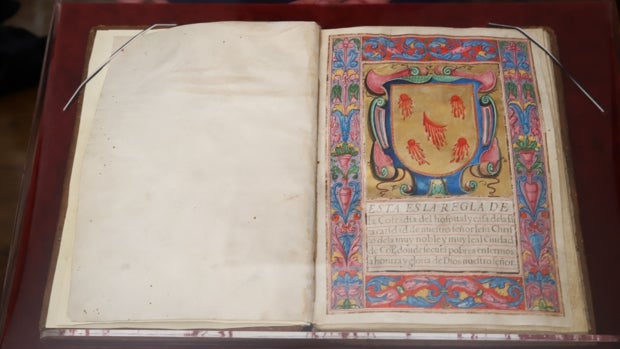 ESTA ES LA REGLA DE
la Cofradia del hospital y casa de la sa
ta caridad de nuestro señor Jesu Chris
to dela muy noble y muy leal Ciudad
de donde se cura pobres enfermos
a honrra y gloria de Dios nuestro señor.